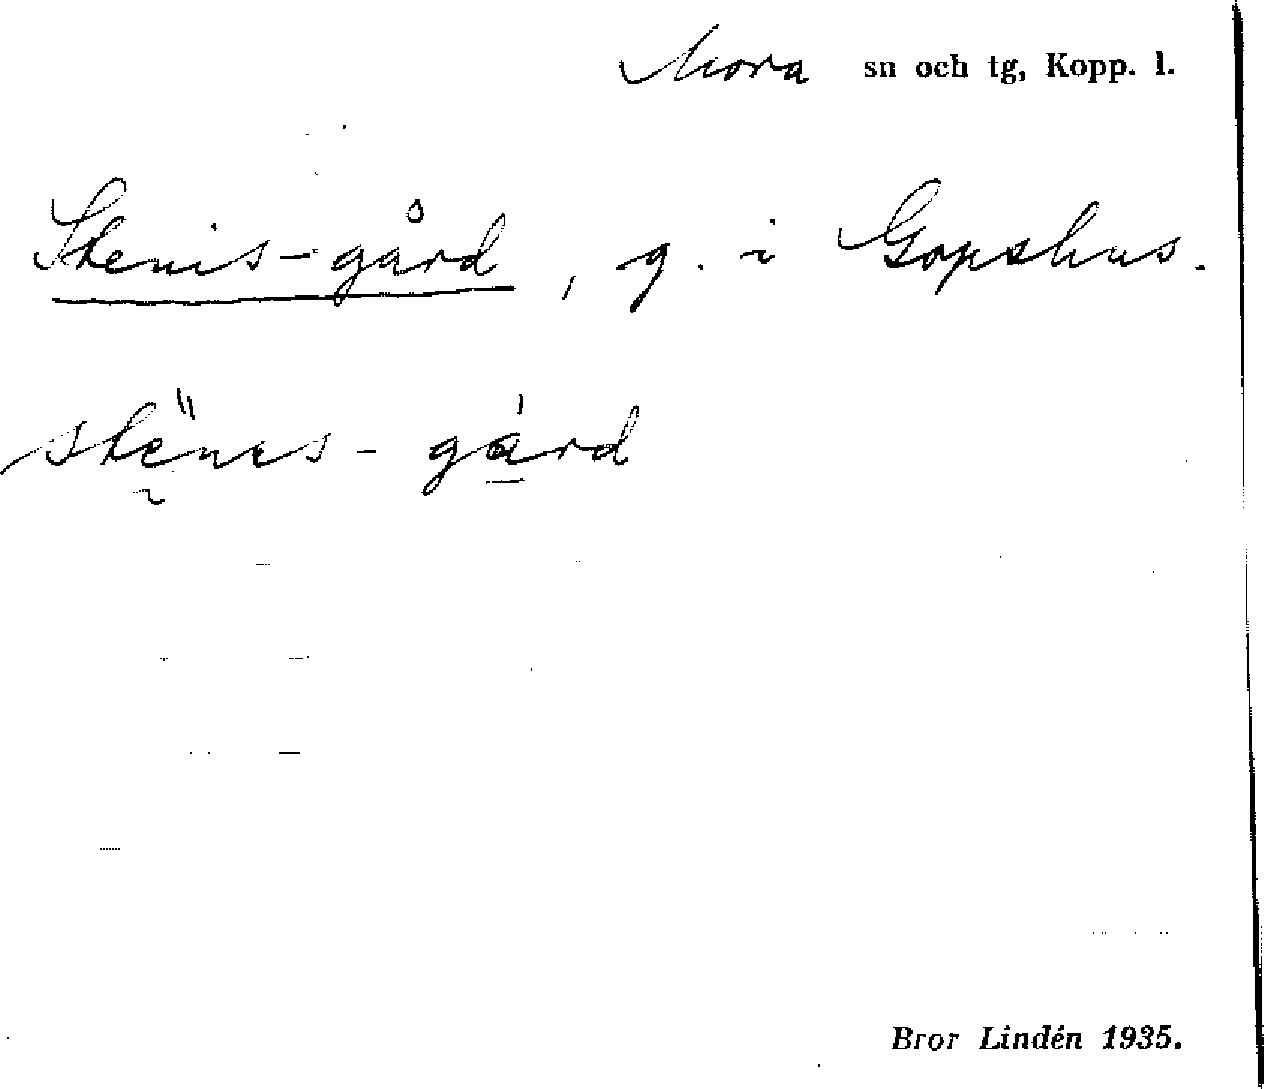 Mora sn och tg, Kopp. l.
Stenis-gård, g. i Gopshus.
stenes-gård
Bror Lindén 1935.